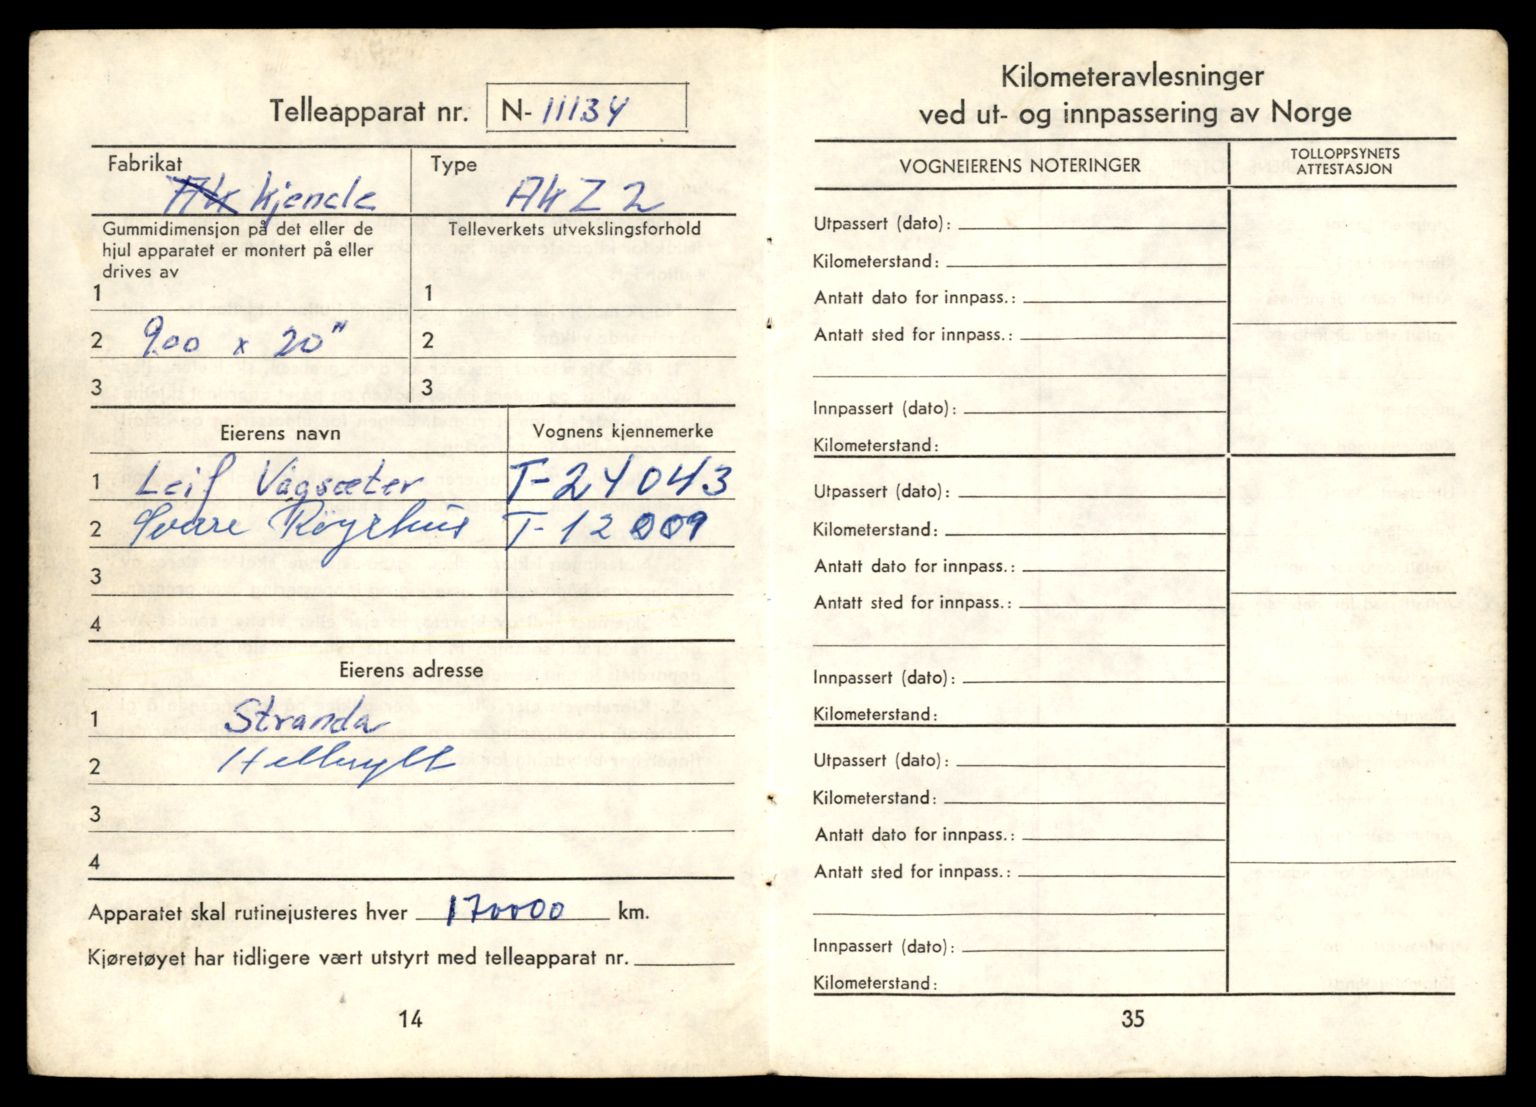 Telleapparat nr. N- 11134
Fabrikat
Kjenale
Type
AK Z 2
Gummidimensjon på det eller de
hjul apparatet er montert på eller
drives av
1
2 900 x 20"
3
Telleverkets utvekslingsforhold
1
2
3
Eierens navn
Vognens kjennemerke
1 Leif Vagsæter T-24043
2 Sverre Röyrhus T-12009
3
4
Eierens adresse
1 Stranda
2 Hellesylt
3
4
Apparatet skal rutinejusteres hver 170000 km.
Kjøretøyet har tidligere vært utstyrt med telleapparat nr.
14
Kilometeravlesninger
ved ut- og innpassering av Norge
VOGNEIERENS NOTERINGER
TOLLOPPSYNETS
ATTESTASJON
Utpassert (dato):
Kilometerstand:
Antatt dato for innpass.:
Antatt sted for innpass.:
Innpassert (dato):
Kilometerstand:
Utpassert (dato):
Kilometerstand:
Antatt dato for innpass.:
Antatt sted for innpass.:
Innpassert (dato):
Kilometerstand:
Utpassert (dato):
Kilometerstand:
Antatt dato for innpass.:
Antatt sted for innpass.:
Innpassert (dato):
Kilometerstand:
35